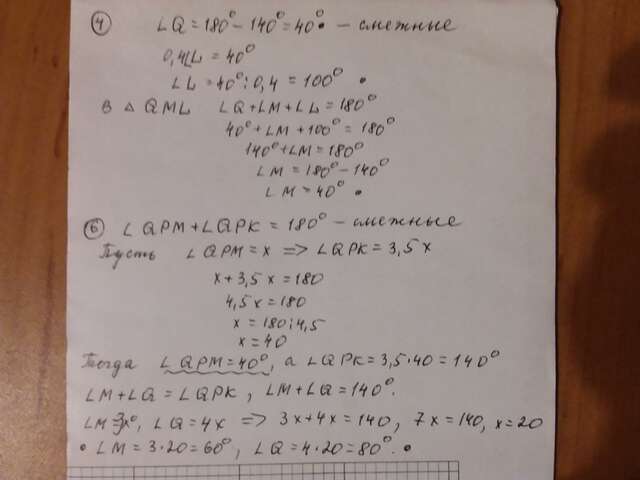 ④ ∠Q = 180° − 140° = 40° • — смежные
0,4∠L = 40°
∠L = 40° : 0,4 = 100° •
В △ QML ∠Q + ∠M + ∠L = 180°
40° + ∠M + 100° = 180°
140° + ∠M = 180°
∠M = 180° − 140°
∠M = 40° •
⑥ ∠QPM + ∠QPK = 180° — смежные
Пусть ∠QPM = x => ∠QPK = 3,5x
x + 3,5x = 180
4,5x = 180
x = 180 : 4,5
x = 40
Тогда ∠QPM = 40°, а ∠QPK = 3,5 · 40 = 140°
∠M + ∠Q = ∠QPK, ∠M + ∠Q = 140°.
∠M = 3x°, ∠Q = 4x => 3x + 4x = 140, 7x = 140, x = 20
• ∠M = 3 · 20 = 60°, ∠Q = 4 · 20 = 80°. •